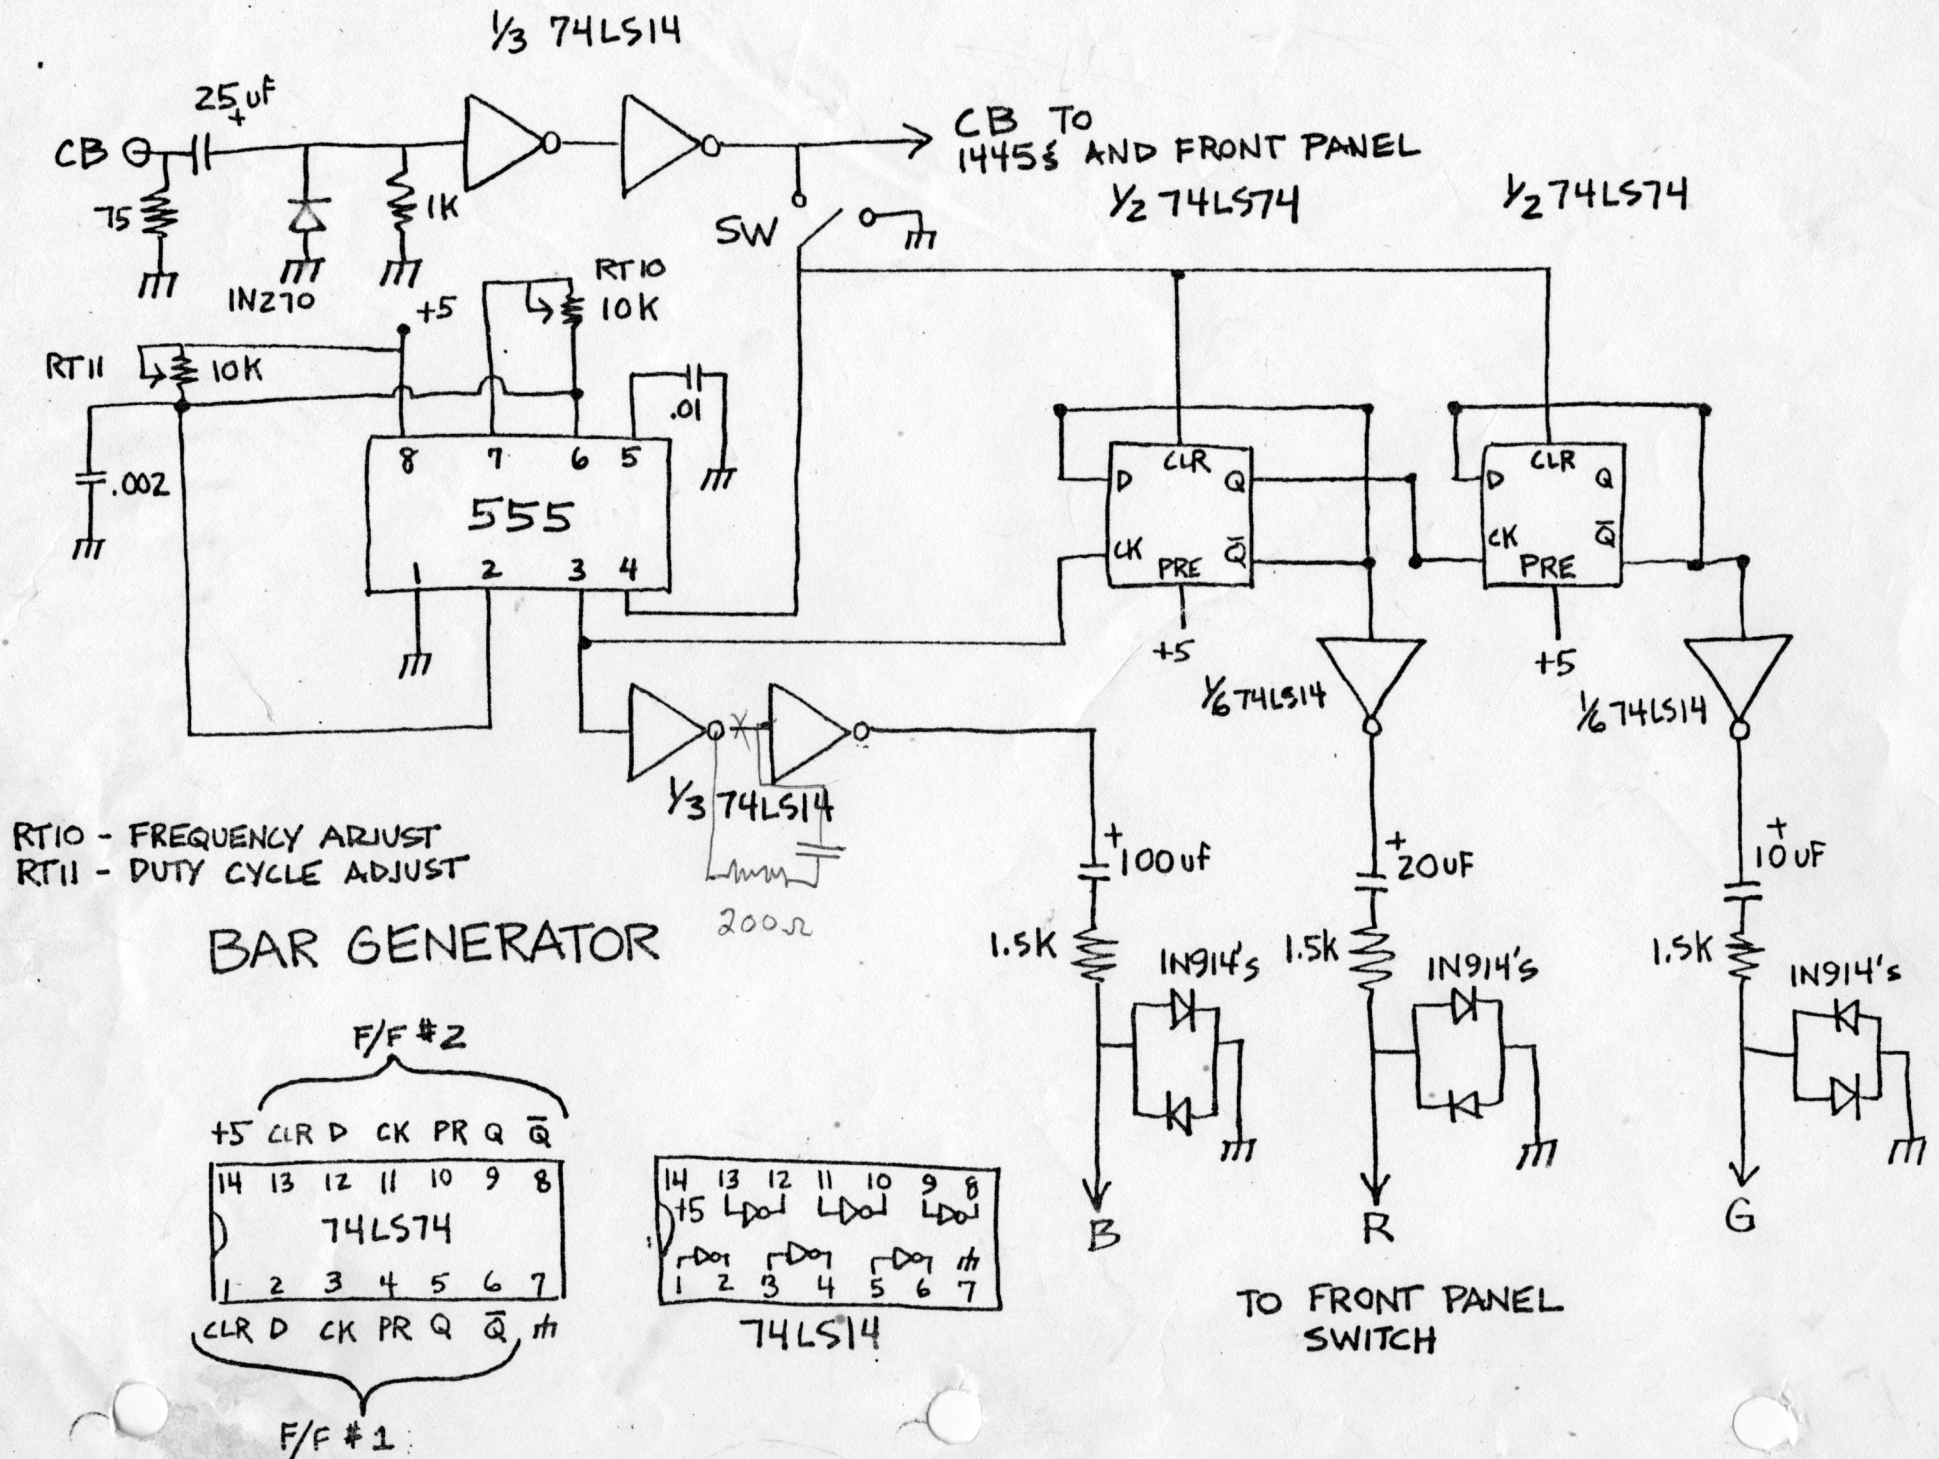 1/3 74LS14
25uF
+
CB
CB TO
1445s AND FRONT PANEL
75
1K
1N270
SW
1/2 74LS74
1/2 74LS74
RT10
10K
+5
RT11
10K
.01
.002
8 7 6 5
555
1 2 3 4
CLR
D Q
CK Q̅
PRE
+5
CLR
D Q
CK Q̅
PRE
+5
1/6 74LS14
1/6 74LS14
X
1/3 74LS14
200Ω
RT10 - FREQUENCY ADJUST
RT11 - DUTY CYCLE ADJUST
BAR GENERATOR
+
100uF
+
20uF
+
10uF
1.5K
1N914's
1.5K
1N914's
1.5K
1N914's
B
R
G
TO FRONT PANEL
SWITCH
F/F #2
+5 CLR D CK PR Q Q̅
14 13 12 11 10 9 8
74LS74
1 2 3 4 5 6 7
CLR D CK PR Q Q̅
F/F #1
14 13 12 11 10 9 8
+5
1 2 3 4 5 6 7
74LS14